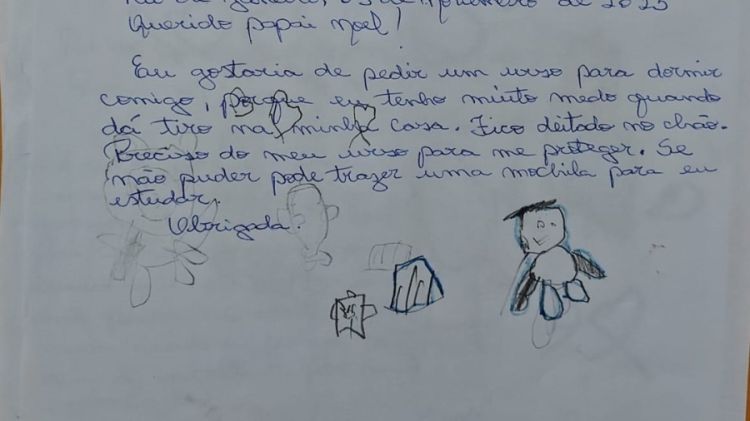 Rio de Janeiro, 03 de novembro de 2025
Querido papai noel!
Eu gostaria de pedir um urso para dormir
comigo, porque eu tenho muito medo quando
dá tiro na minha casa. Fico deitado no chão.
Preciso do meu urso para me proteger. Se
não puder pode trazer uma mochila para eu
estudar.
Obrigada.